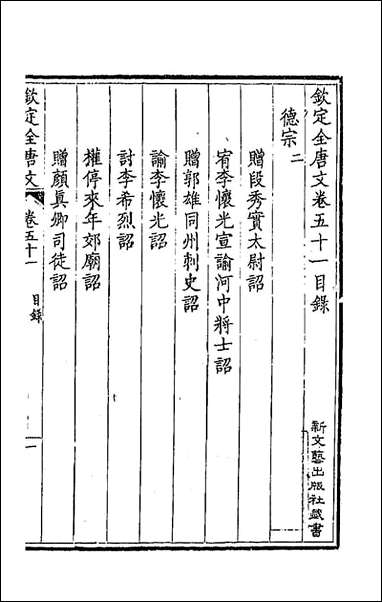 欽定全唐文卷五十一目錄
新文藝出版社藏書
德宗二
贈段秀實太尉詔
宥李懷光宣諭河中將士詔
贈郭雄同州刺史詔
諭李懷光詔
討李希烈詔
權停來年郊廟詔
贈顏真卿司徒詔
欽定全唐文
卷五十一
目錄
一